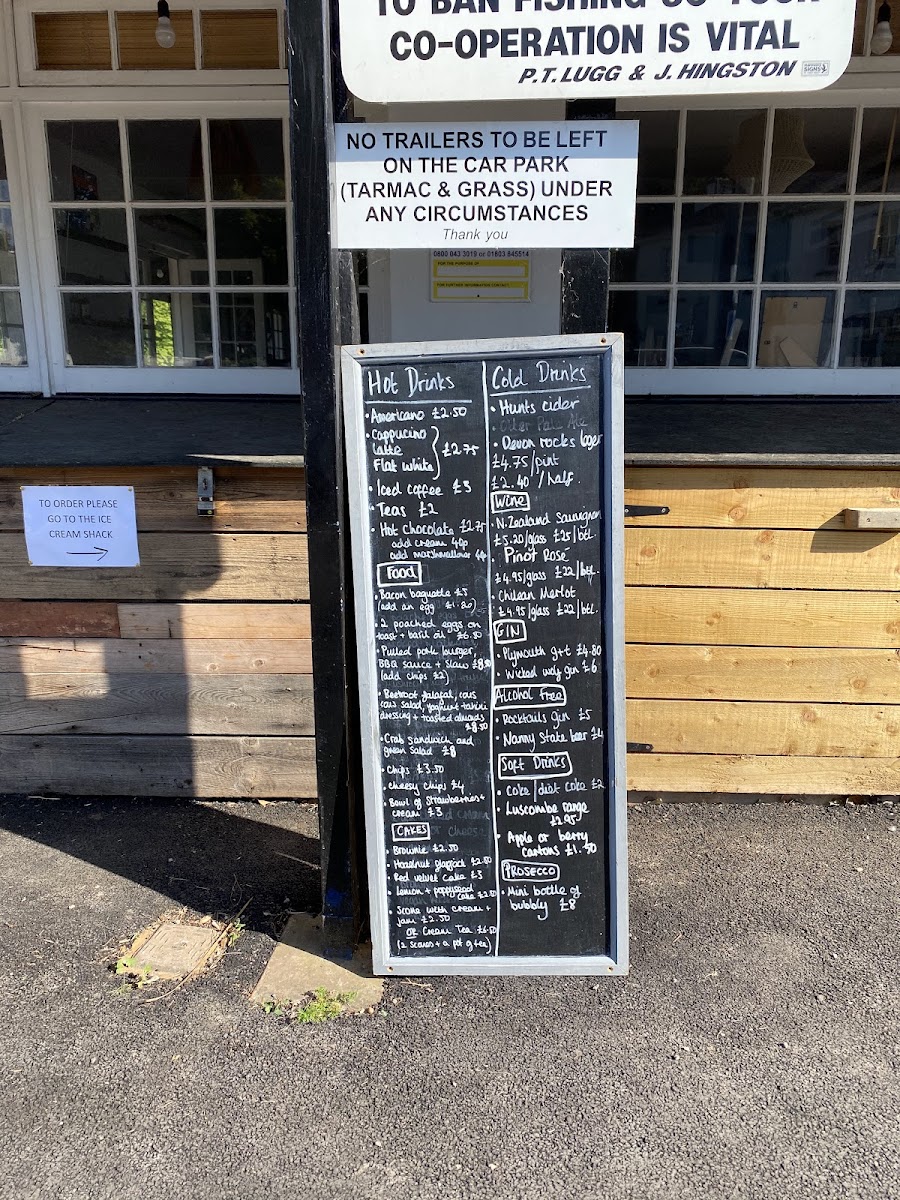 TO BAN FISHING SO YOUR
CO-OPERATION IS VITAL
P.T. LUGG & J. HINGSTON
SIGNS
NO TRAILERS TO BE LEFT
ON THE CAR PARK
(TARMAC & GRASS) UNDER
ANY CIRCUMSTANCES
Thank you
0800 043 3019 or 01803 845514
FOR THE PURPOSE OF
FOR FURTHER INFORMATION CONTACT
TO ORDER PLEASE
GO TO THE ICE
CREAM SHACK
Hot Drinks
• Americano £2.50
• Cappucino
Latte
Flat white
£2.75
• Iced coffee £3
• Teas £2
• Hot Chocolate £2.75
add cream 40p
add marshmallows 40p
Food
• Bacon baguette £5
(add an egg £1.80)
• 2 poached eggs on
toast + basil oil £6.80
• Pulled pork burger,
BBQ sauce + slaw £8.50
(add chips £2)
• Beetroot falafal, cous
cous salad, yoghurt tahini
dressing + toasted almonds
£8.50
• Crab sandwich and
green salad £8
• Chips £3.50
• cheesy chips £4
• Bowl of strawberries +
cream £3
CAKES
• Brownie £2.50
• Hazelnut flapjack £2.50
• Red velvet cake £3
• Lemon + poppyseed
cake £2.50
• Scone with cream +
jam £2.50
OR Cream Tea £6.50
(2 scones + a pot of tea)
Cold Drinks
• Hunts cider
• Otter Pale Ale
• Devon rocks lager
£4.75/pint
£2.40 /half.
Wine
• N.Zealand Sauvignon
£5.20/glass £25/btl.
• Pinot Rosé
£4.95/glass £22/btl.
• Chilean Merlot
£4.95/glass £22/btl.
GIN
• Plymouth g+t £4.80
• Wicked wolf gin £6
Alcohol Free
• Rocktails gin £5
• Nanny State beer £4
Soft Drinks
• coke/diet coke £2
• Luscombe range
£2.95
• Apple or berry
cartons £1.50
PROSECCO
• Mini bottle of
bubbly £8